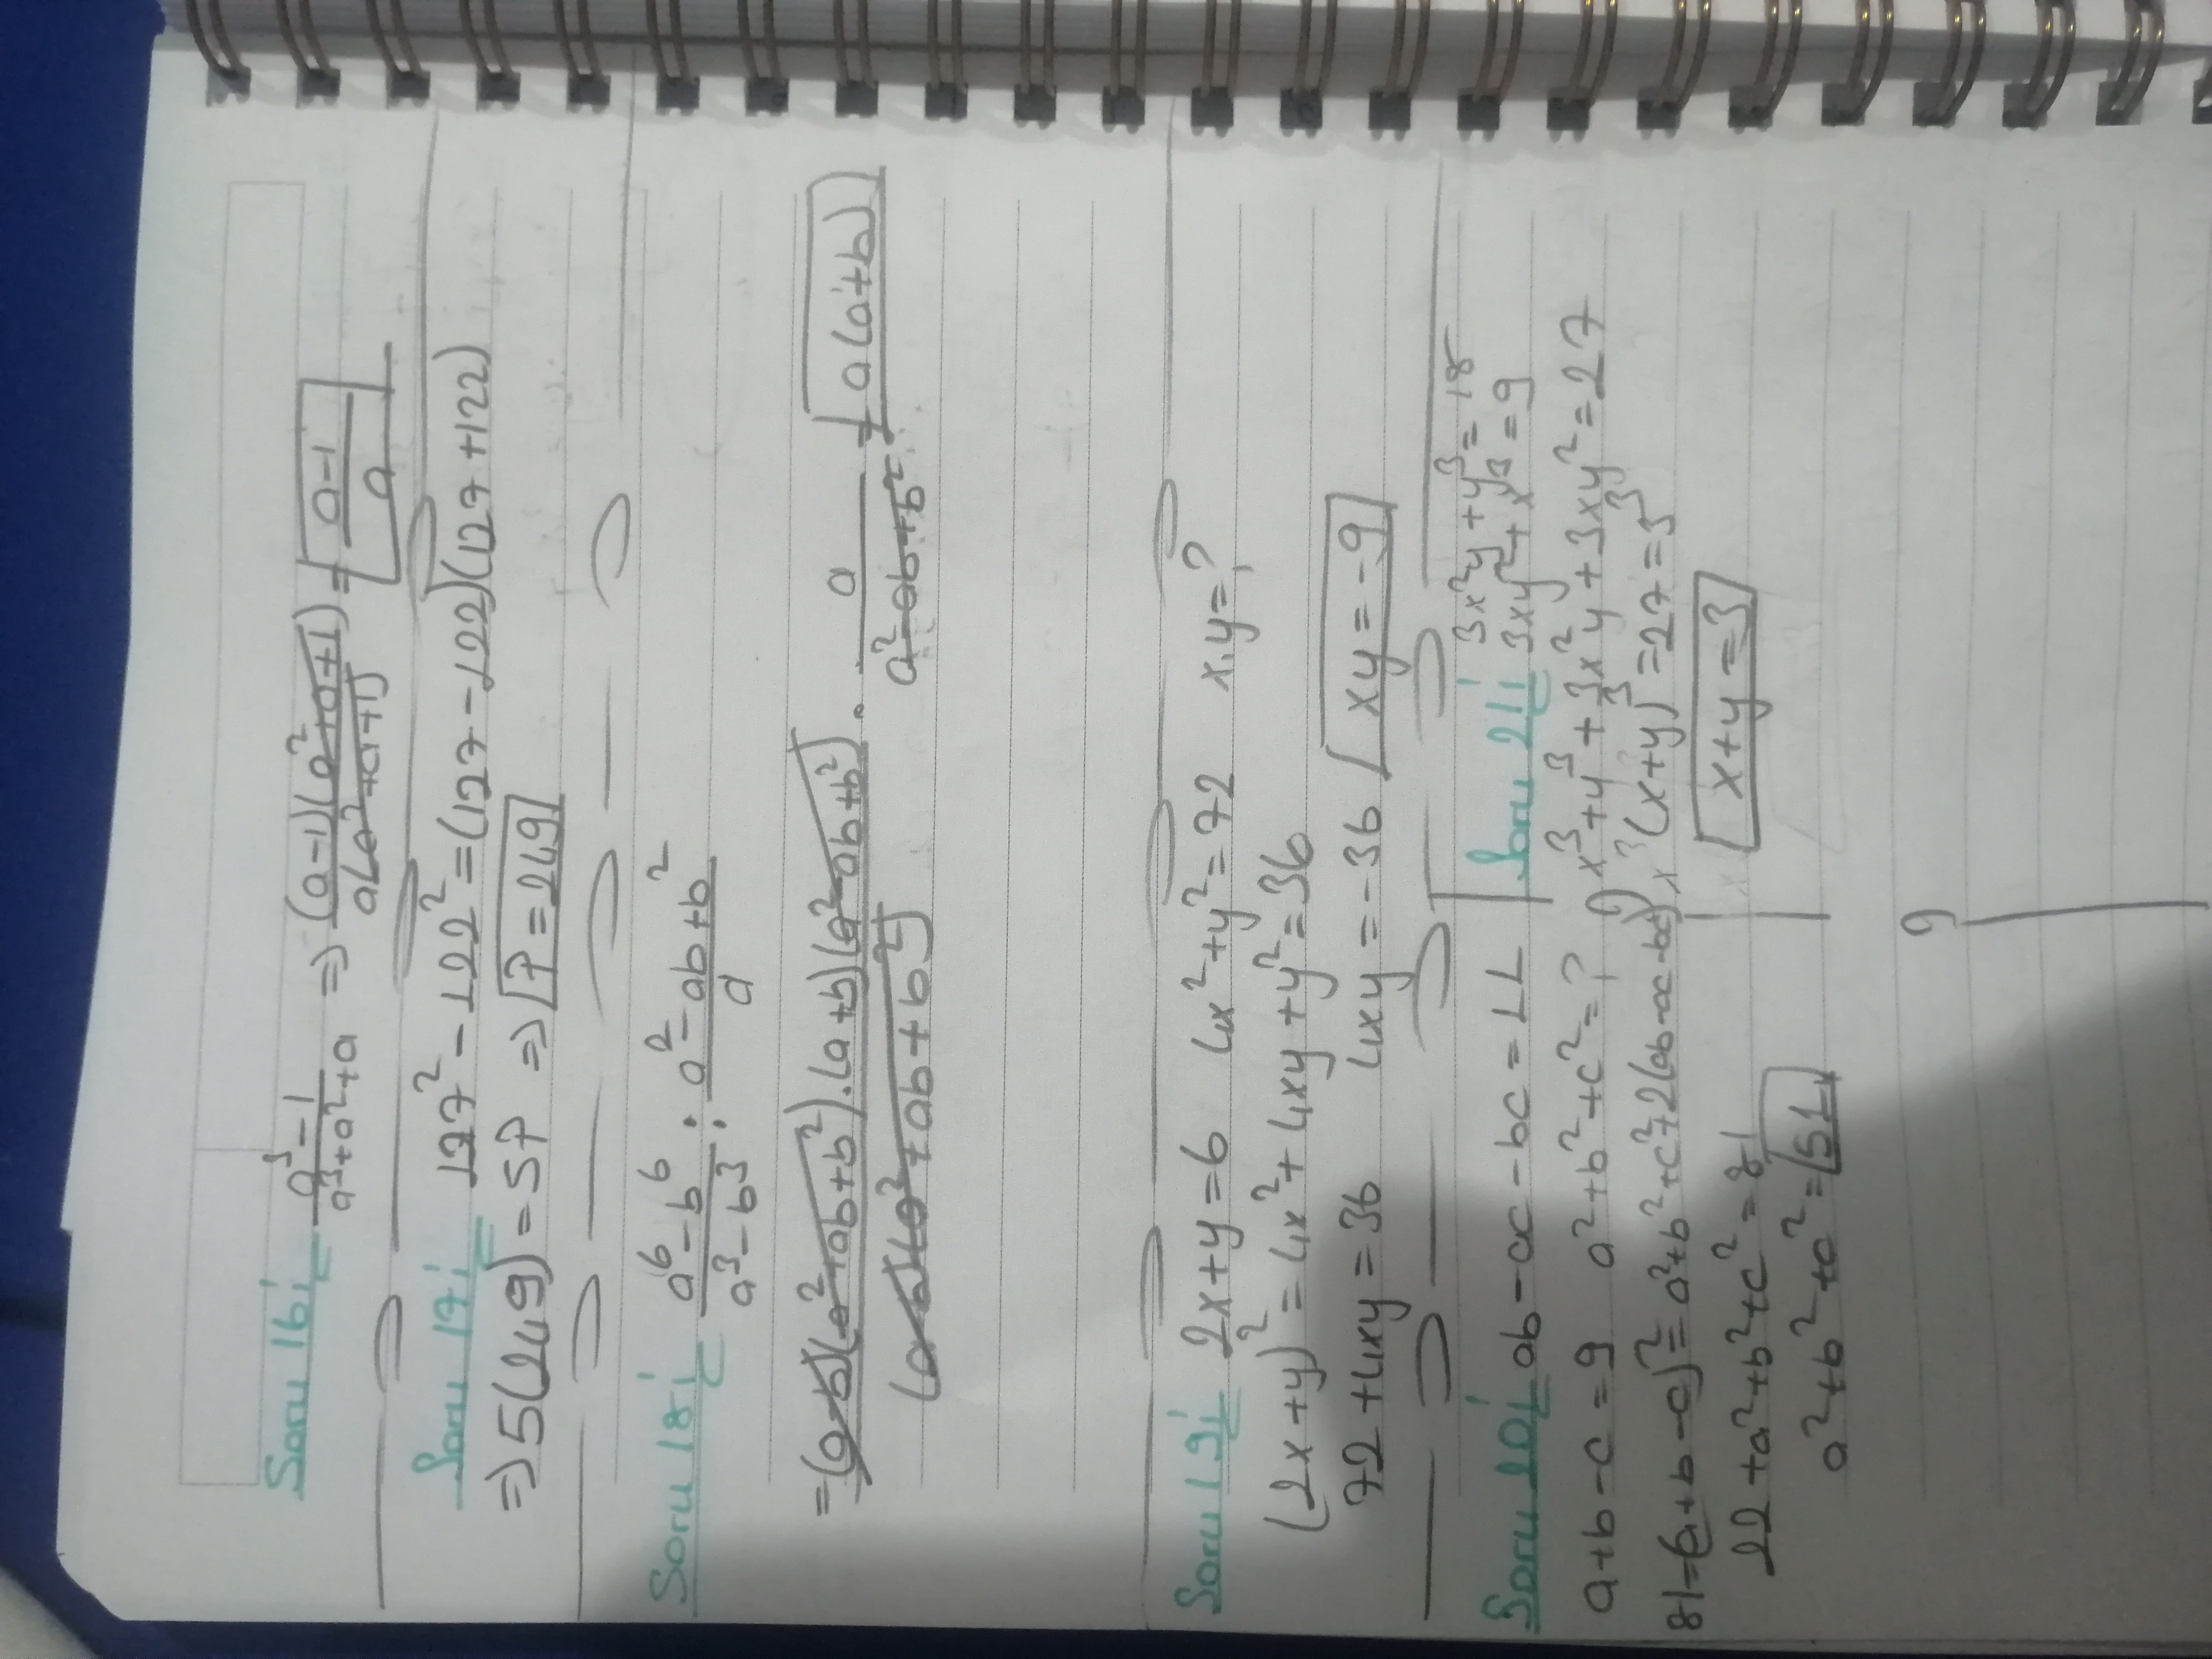 Soru 16: a³-1/a³+a²+a ⇒ (a-1)(a²+a+1)/a(a²+a+1) = a-1/a
Soru 17: 127²-122²=(127-122)(127+122)
⇒ 5(249)=5P ⇒ P=249
Soru 18: a⁶-b⁶/a³-b³ : a²-ab+b²/a
=(a-b)(a²+ab+b²).(a+b)(a²-ab+b²)/(a-b)(a²+ab+b²) . a/a²-ab+b² = a(a+b)
Soru 19: 2x+y=6 4x²+y²=72 x.y=?
(2x+y)²=4x²+4xy+y²=36
72+4xy=36 4xy=-36 xy=-9
Soru 20: ab-ac-bc=11
a+b-c=9 a²+b²+c²=?
81=(a+b-c)²=a²+b²+c²+2(ab-ac-bc)
22+a²+b²+c²=81
a²+b²+c²=51
Soru 21: 3x²y+y³=18
3xy²+x³=9
x³+y³+3x²y+3xy²=27
(x+y)³=27=3³
x+y=3